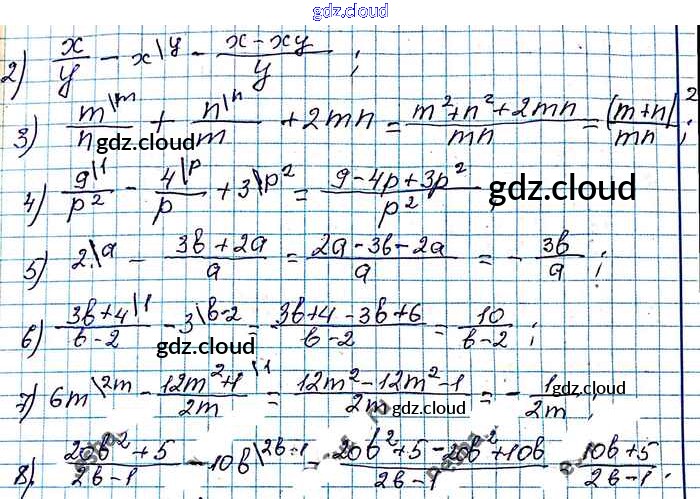 gdz.cloud
2) x/y - x\y - (x-xy)/y ;
3) m\m/n + n\n/m + 2mn = (m²+n²+2mn)/mn = (m+n)²/mn ;
gdz.cloud
4) 9\1/p² - 4\p/p + 3\p² = (9-4p+3p²)/p² gdz.cloud
5) 2\a - (3b+2a)/a = (2a-3b-2a)/a = - 3b/a ;
6) (3b+4\1)/(b-2) - 3\b-2 = (3b+4-3b+6)/(b-2) = 10/(b-2) ;
gdz.cloud gdz.cloud
7) 6m\2m - (12m²+1\1)/2m = (12m²-12m²-1)/2m = - 1/2m ;
gdz.cloud gdz.cloud gdz.cloud
8) (20b²+5)/(2b-1) - 10b\2b-1 = (20b²+5-20b²+10b)/(2b-1) = (10b+5)/(2b-1) .